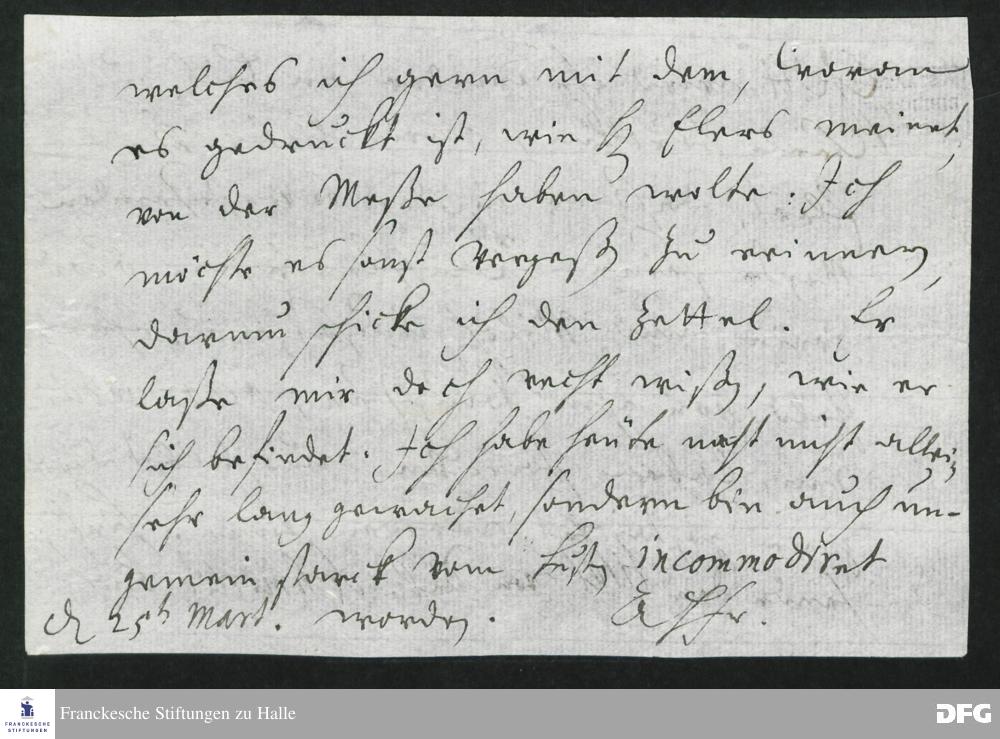 welches ich gern mit dem, woran
es gedruckt ist, wie H Elers meinet,
von der Meße haben wolte. Ich
möchte es sonst vergeß zu erinnern,
darum schicke ich den Zettel. Er
laße mir doch recht wißen, wie er
sich befindet. Ich habe heüte nacht nicht allein
sehr lang gewachet, sondern bin auch un-
gemein starck vom Husten incommodiret
d 25ten Mart. worden.
Franckesche Stiftungen zu Halle
FRANCKESCHE
STIFTUNGEN
DFG